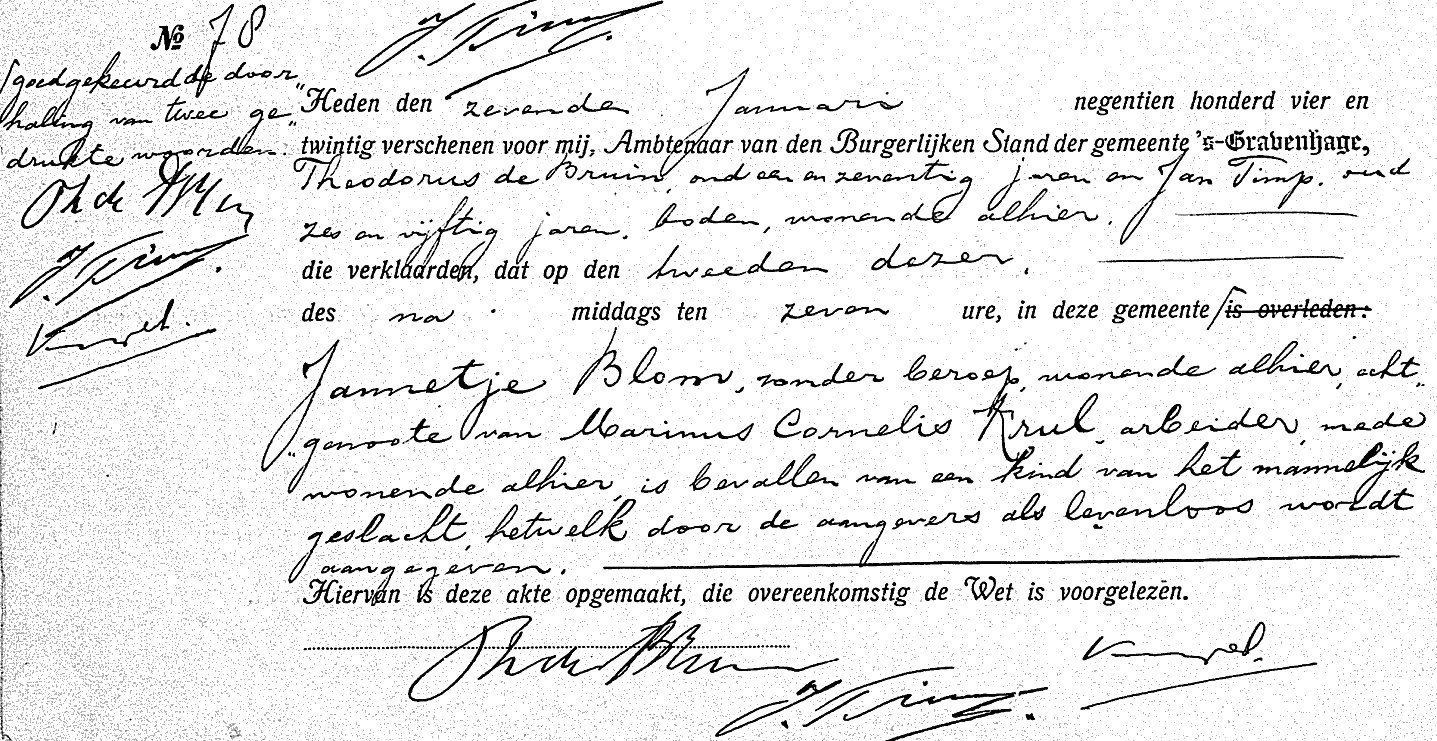 J. Timp.
№ 78
goedgekeurd de door
haling van twee ge„
drukte woorden.
Th de Bruin
J. Timp.
Heden den zevenden Januari negentien honderd vier en
twintig verschenen voor mij, Ambtenaar van den Burgerlijken Stand der gemeente 's-Gravenhage,
Theodorus de Bruin, oud een en zeventig jaren en Jan Timp. oud
zes en vijftig jaren, boden, wonende alhier.
die verklaarden, dat op den tweeden dezer,
des na middags ten zeven ure, in deze gemeente is overleden:
Jannetje Blom, zonder beroep, wonende alhier, acht„
„genoote van Marinus Cornelis Krul, arbeider, mede
wonende alhier, is bevallen van een kind van het mannelijk
geslacht, hetwelk door de aangevers als levenloos wordt
aangegeven.
Hiervan is deze akte opgemaakt, die overeenkomstig de Wet is voorgelezen.
Th de Bruin
J. Timp.